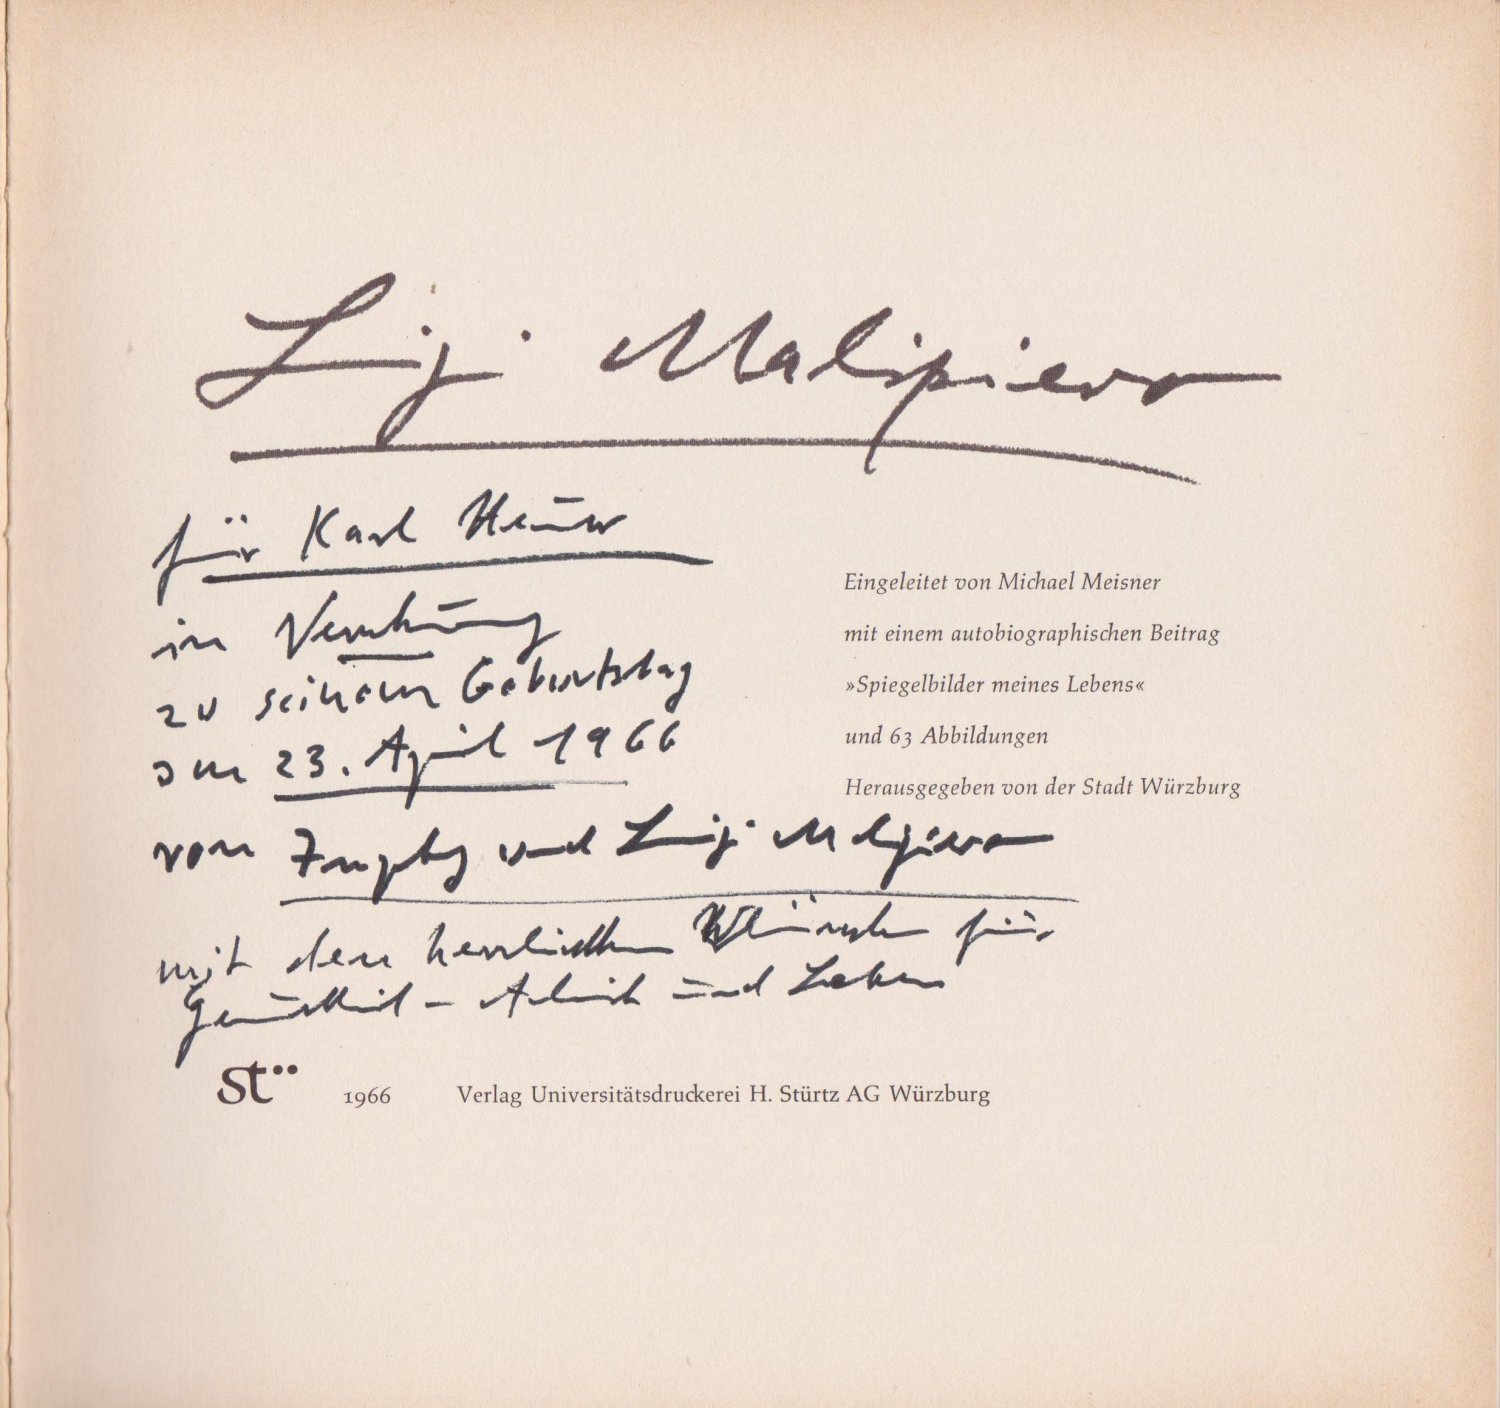 Luigi Malipiero
für Karl Heuer
in Verehrung
zu seinem Geburtstag
am 23. April 1966
von und Luigi Malipiero
mit den herzlichen Wünschen für
Gesundheit – Arbeit und Leben
Eingeleitet von Michael Meisner
mit einem autobiographischen Beitrag
»Spiegelbilder meines Lebens«
und 63 Abbildungen
Herausgegeben von der Stadt Würzburg
stü 1966 Verlag Universitätsdruckerei H. Stürtz AG Würzburg